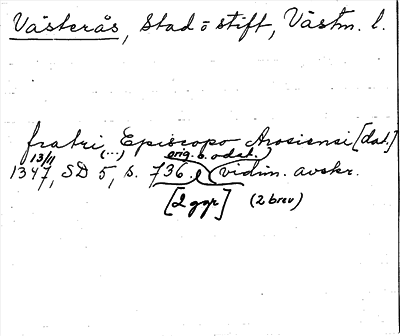 Västerås, Stad o stift, Västm. l.
fratri (...) Episcopo Arosiensi [dat.]
13/11 orig. o. odat.)
1347, SD 5, s. 736. (vidim. avskr.
[2 ggr] (2 brev)